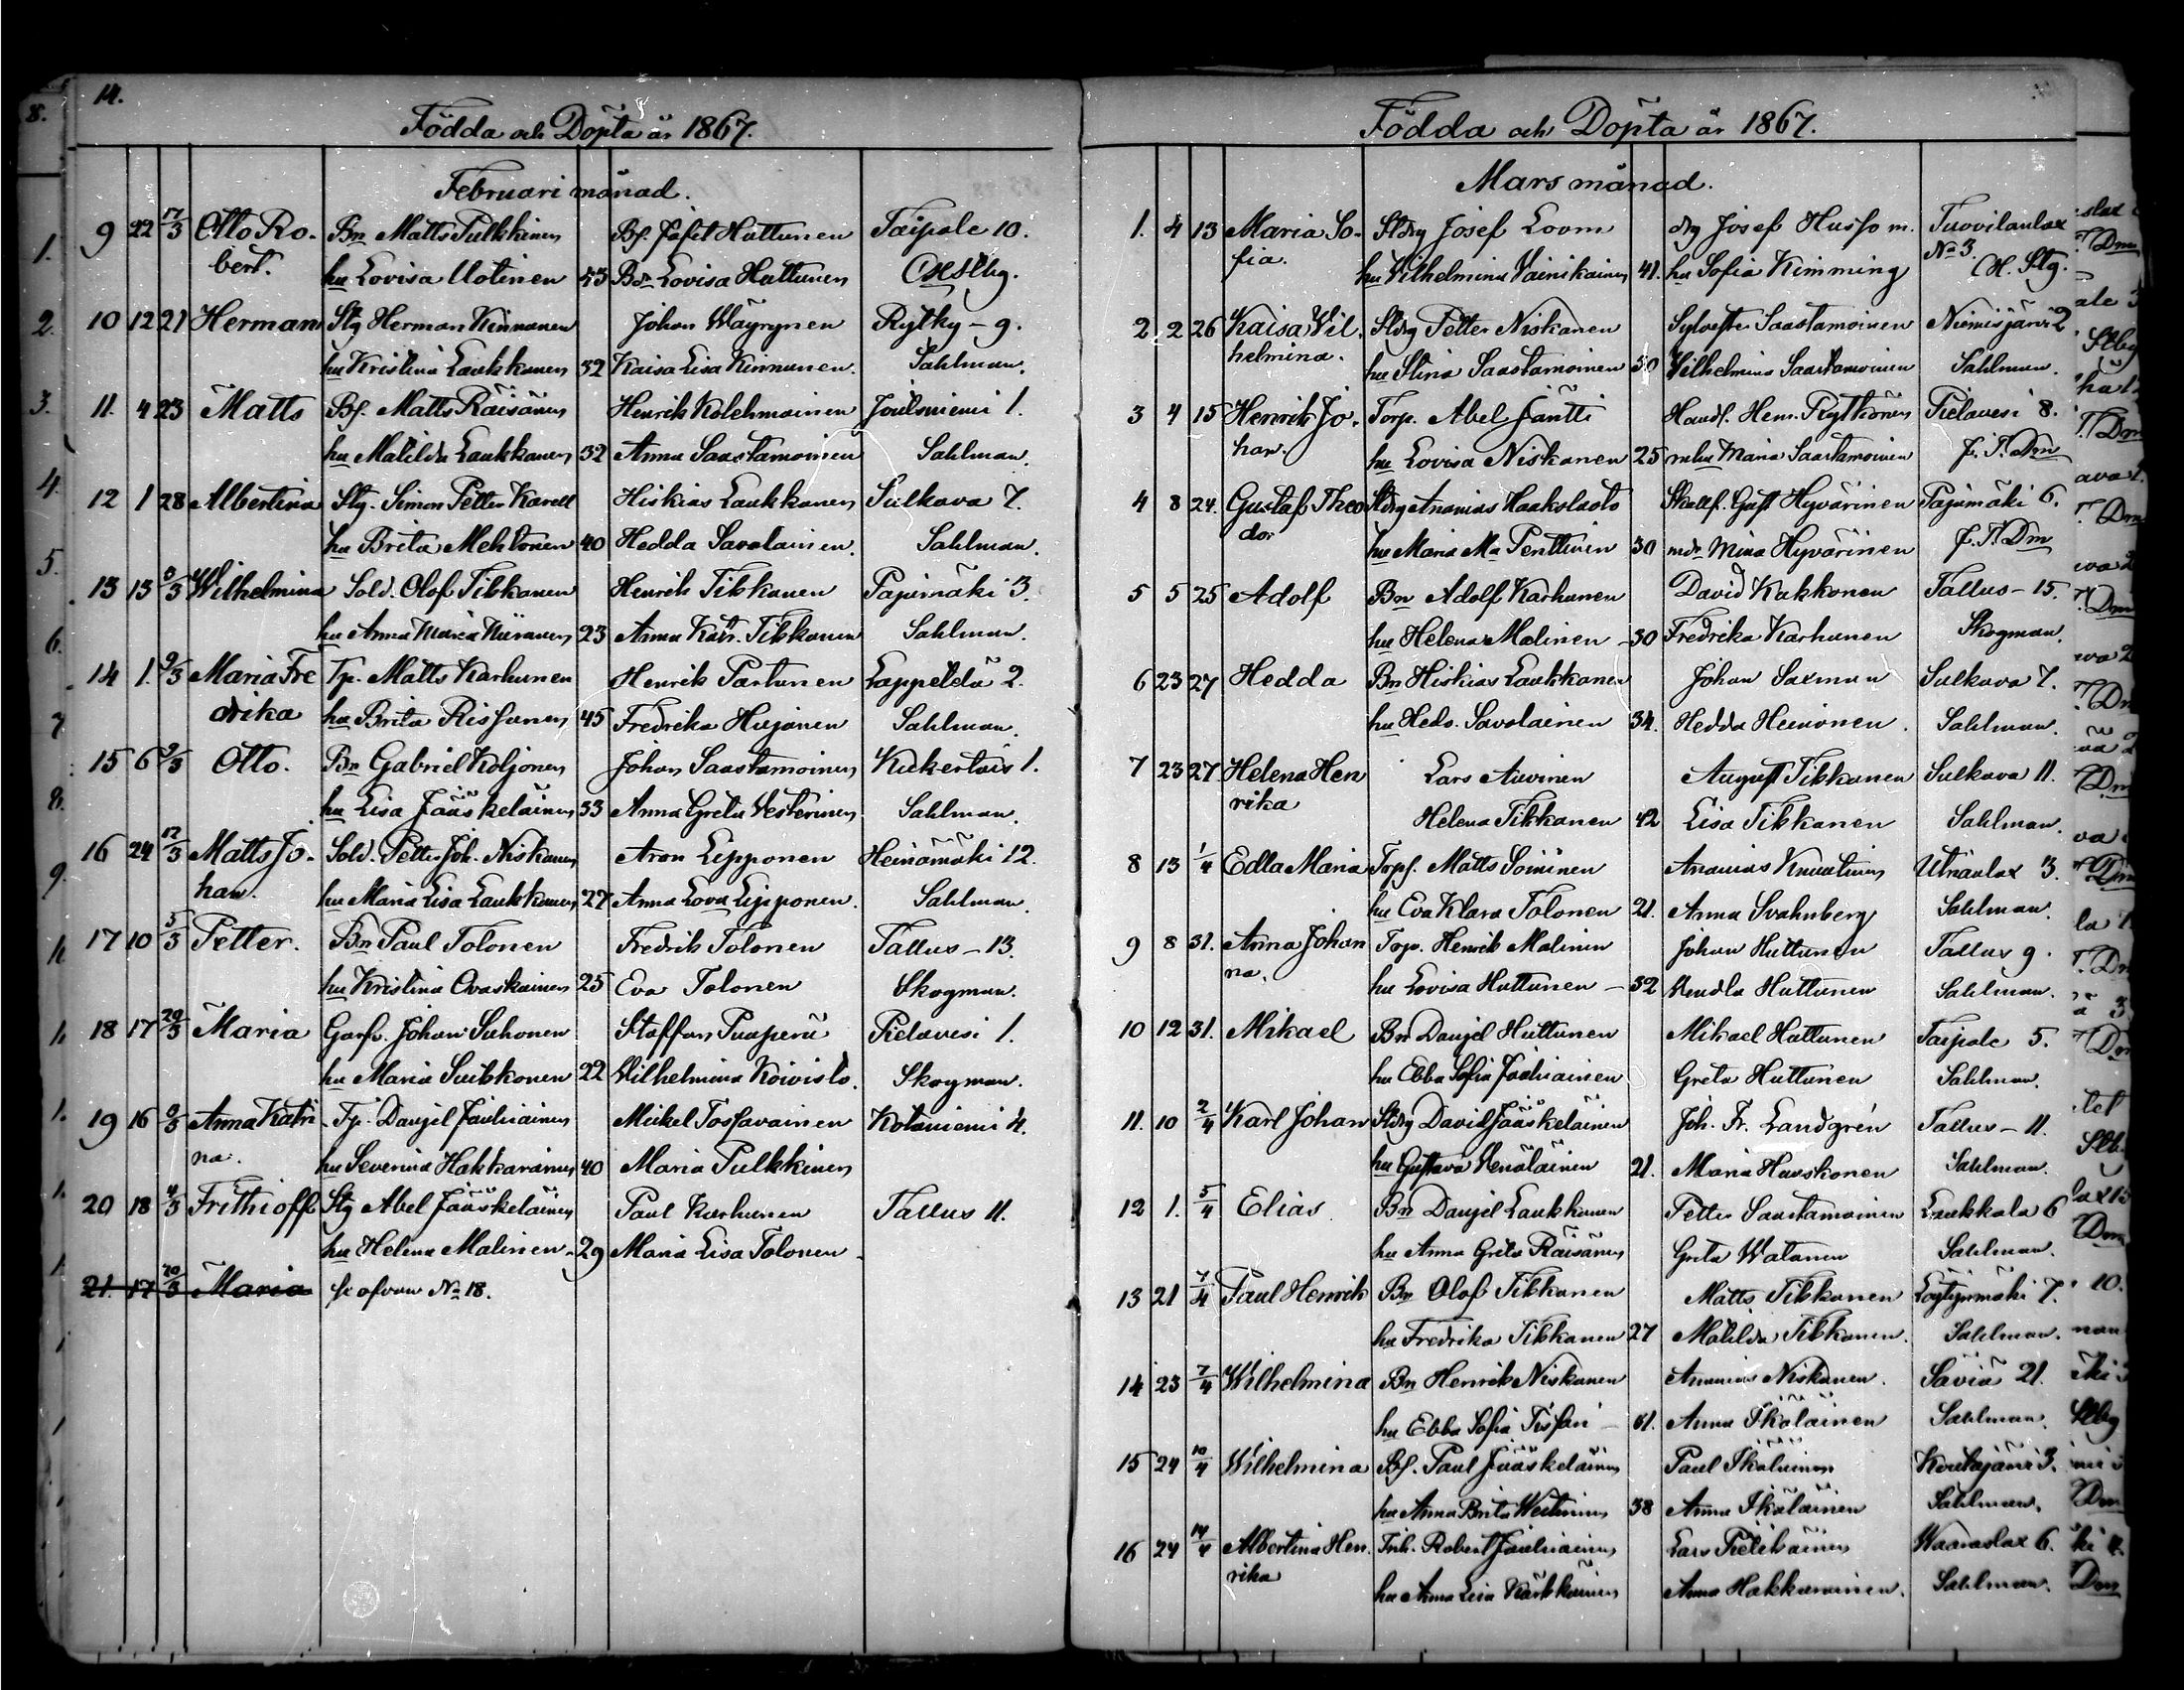 14.
Födda och Döpta år 1867.
Februari månad.
9 22 17/3 Otto Ro- Bn Matts Pulkkinen Bs. Jafet Huttunen Taipale 10.
bert. hu Lovisa Uotinen 43 Bdr Lovisa Huttunen
10 12 21 Herman Stg Herman Kinnunen Johan Wäyrynen Rytky - 9.
hu Kristina Laukkanen 32 Kaisa Lisa Kinnunen. Sahlman.
11. 4 23 Matts Bs. Matts Räisänen Henrik Kolehmainen Joutsniemi 1.
hu Matilda Laukkanen 32 Anna Saastamoinen Sahlman.
12 1 28 Albertina Stg. Simon Petter Karell Hiskias Laukkanen Sulkava 7.
hu Brita Mehtonen 40 Hedda Savolainen. Sahlman.
13 13 3/3 Wilhelmina Sold. Olof Tikkanen Henrik Tikkanen Pajumäki 3.
hu Anna Maria Niiranen 23 Anna Katr. Tikkanen Sahlman.
14 1. 3/3 Maria Fre Tp. Matts Karhunen Henrik Partanen Lappetelä 2.
drika hu Brita Rissanen 45 Fredrika Hujanen Sahlman.
15 6 3/3 Otto. Bn Gabriel Koljonen Johan Saastamoinen Kukertais 1.
hu Lisa Jääskeläinen 33 Anna Greta Vesterinen Sahlman.
16 24 12/3 Matts Jo- Sold. Petter Joh. Niskanen Aron Lipponen Heinämäki 12.
han. hu Maria Lisa Laukkanen 27 Anna Lova Lipponen. Sahlman.
17 10 5/3 Petter. Bn Paul Tolonen Fredrik Tolonen Tallus - 13.
hu Kristina Ovaskainen 25 Eva Tolonen Skogman.
18 17 20/3 Maria Johan Suhonen Staffan Puuperä Pielavesi 1.
hu Maria Suihkonen 22 Wilhelmina Koivisto. Skogman.
19 16 Anna Katri Tp. Danjel Jauhiainen Mickel Tossavainen Kotaniemi 4.
na. hu Severina Hakkarainen 40 Maria Pulkkinen
20 18 4/3 Frithioff Stg Abel Jääskeläinen Paul Karhunen Tallus 11.
hu Helena Malinen - 29 Maria Lisa Tolonen
21. 17 20/3 Maria se ofvan No 18.
Födda och Döpta år 1867.
Mars månad.
1. 4 13 Maria So- Stdrg Josef Loom drg Josef Husso m. Tuovilanlax
fia. hu Vilhelmina Vainikainen 41. hu Sofia Kimming No 3. Stg.
2 2 26 Kaisa Wil- Stdrg Petter Niskanen Sylvester Saastamoinen Niemisjärvi 2
helmina. hu Stina Saastamoinen 30 Vilhelmina Saastamoinen Sahlman.
3 4 15 Henrik Jo- Torp. Abel Jäntti Handl. Henr. Rytkönen Pielavesi 8.
han. hu Lovisa Niskanen 25 Maria Saastamoinen J. T. Dm
4 8 24. Gustaf Theo Stdrg Ananias Haaksluoto Gust Hyvärinen Pajumäki 6.
dor hu Maria Ma Penttinen 30 mdr Mina Hyvärinen J. T. Dm
5 5 25 Adolf Bn Adolf Karhunen David Kakkonen Tallus - 15.
hu Helena Malinen - 30 Fredrika Karhunen Skogman.
6 23 27 Hedda Bn Hiskias Laukkanen Johan Saxman Sulkava 7.
hu Hedv. Savolainen 34. Hedda Heinonen. Sahlman.
7 23 27 Helena Hen Lars Auvinen August Tikkanen Sulkava 11.
rika Helena Tikkanen 42 Lisa Tikkanen Sahlman.
8 13 1/4 Edla Maria Torps. Matts Soininen Ananias Knuutinen Utrianlax 3.
hu Eva Klara Tolonen 21. Anna Svahnberg Sahlman.
9 8 31. Anna Johan Torp. Henrik Malinen Johan Huttunen Tallus 9.
na. hu Lovisa Huttunen - 32 Vendla Huttunen Sahlman.
10 12 31. Mikael Bn Danjel Huttunen Mikael Huttunen Taipale 5.
hu Ebba Sofia Jauhiainen Greta Huttunen Sahlman.
11. 10 2/4 Karl Johan Stdrg David Jääskeläinen Joh. Fr. Landgrén Tallus - 11.
hu Gustava Venäläinen 21. Maria Hauskonen Sahlman.
12 1. 5/4 Elias Bn Danjel Laukkanen Petter Saastamoinen Laukkala 6
hu Anna Greta Räisänen Greta Watanen Sahlman.
13 21 7/4 Paul Henrik Bn Olof Tikkanen Matts Tikkanen Löytynmäki 7.
hu Fredrika Tikkanen 27 Matilda Tikkanen. Sahlman.
14 23 7/4 Wilhelmina Bn Henrik Niskanen Ananias Niskanen. Säviä 21.
hu Ebba Sofia - 41. Anna Ikäläinen Sahlman.
15 24 10/4 Wilhelmina Bs. Paul Jääskeläinen Paul Ikäläinen Koutajärvi 3.
hu Anna Brita Westerinen 38 Anna Ikäläinen Sahlman.
16 24 14/4 Albertina Hen- Inh. Robert Jauhiainen Lars Pielikäinen Waaraslax 6.
rika hu Anna Lisa Kärkkäinen Anna Hakkarainen. Sahlman.